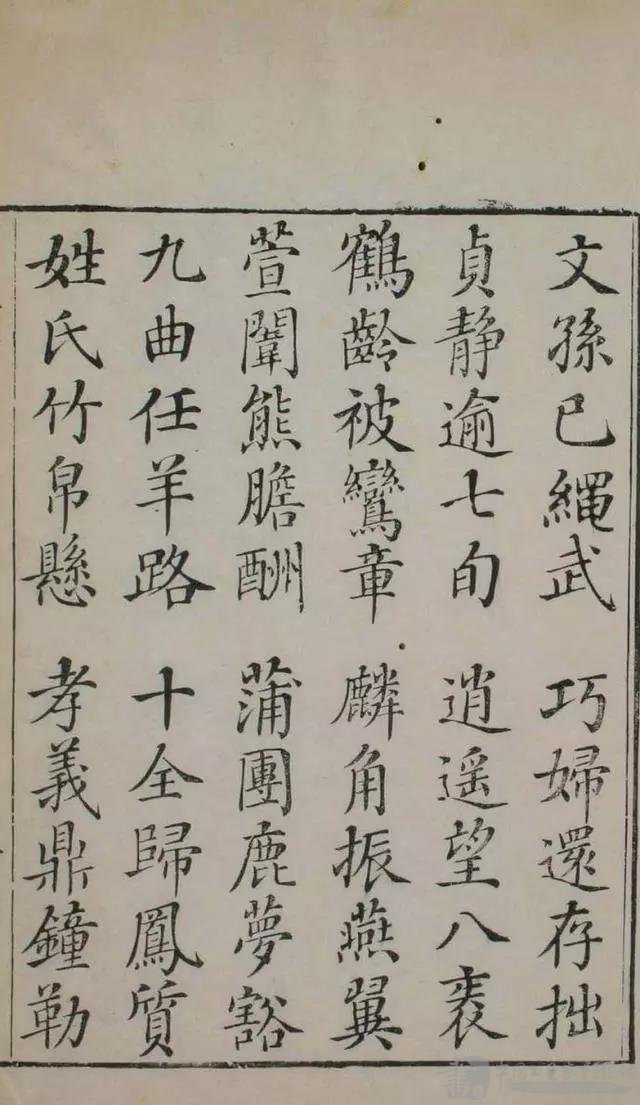 文孫已繩武 巧婦還存拙
貞靜逾七旬 逍遥望八袠
鶴齡被鸞章 麟角振燕翼
萱闈熊膽酬 蒲團鹿夢豁
九曲任羊路 十全歸鳳質
姓氏竹帛懸 孝義鼎鐘勒